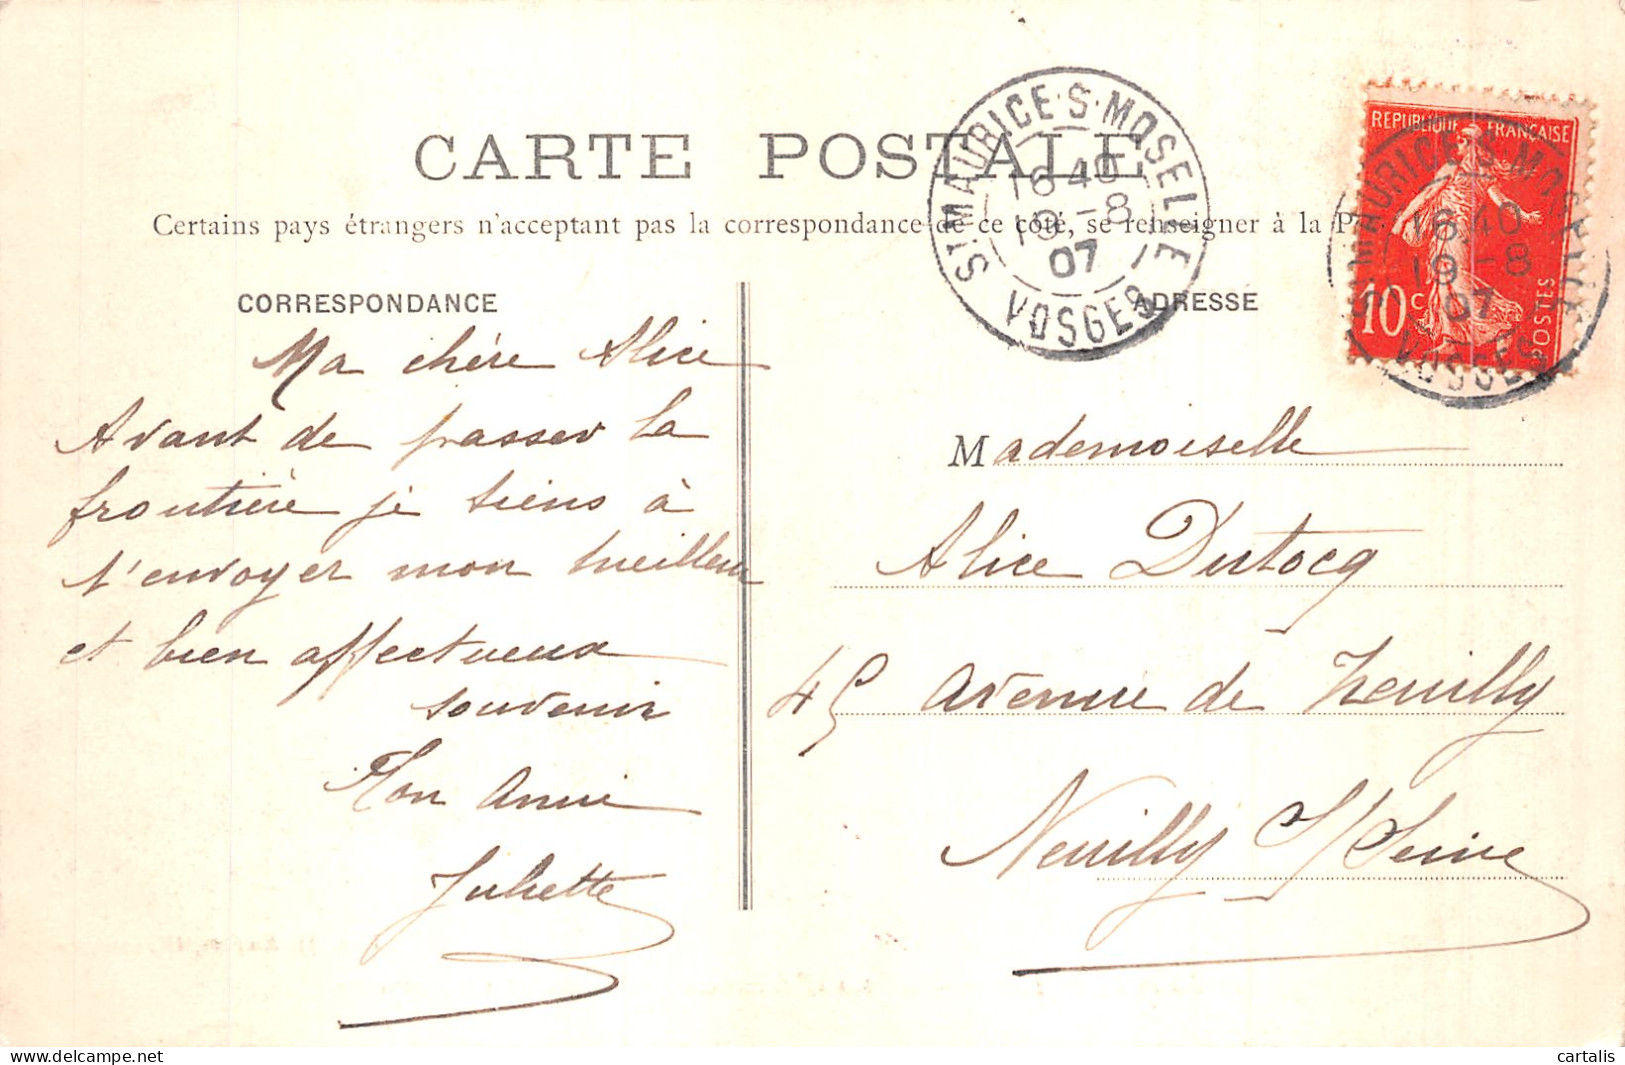 CARTE POSTALE
Certains pays étrangers n'acceptent pas la correspondance de ce côté, se renseigner à la P
CORRESPONDANCE
Ma chère Alice
Avant de passer la
frontière je tiens à
t'envoyer mon meilleur
et bien affectueux
souvenir
Ton amie
Juliette
ADRESSE
Mademoiselle
Alice Dutocq
45 avenue de Neuilly
Neuilly S/Seine
ST MAURICE-S-MOSELLE
16 40
19-8
07
VOSGES
REPUBLIQUE FRANÇAISE
10c
POSTES
ST MAURICE-S-MOSELLE
16 40
19-8
07
VOSGES
cartalis
www.delcampe.net